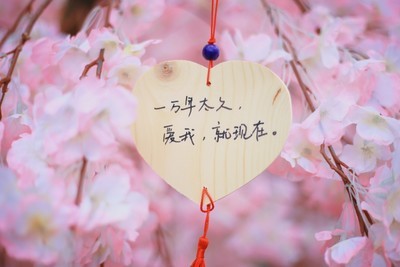 一万年太久，
爱我，就现在。